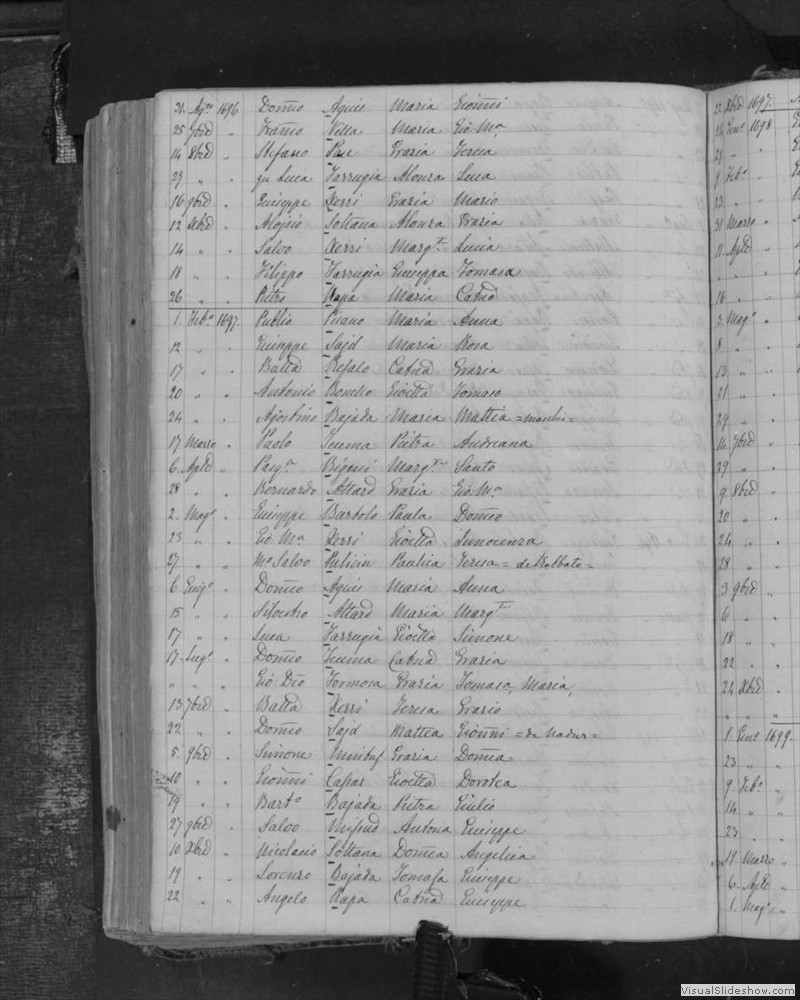 21. Agto 1696 Domco Agius Maria Gionni
25 7bre " Franco Vella Maria Gio Ma
14 8bre " Stefano Pace Grazia Teresa
23 " " qm Luca Farrugia Alonza Luca
16 9bre " Giuseppe Xerri Grazia Mario
12 Xbre " Aloisio Soltana Alonza Grazia
14 " " Salvo Xerri Margta Lucia
18 " " Filippo Farrugia Giuseppa Tomasa
26 " " Pietro Rapa Maria Catnd
1. Febo 1697. Publio Pisano Maria Anna
12 " " Giuseppe Sajd Maria Rosa
17 " " Batta Refalo Catnd Grazia
20 " " Antonio Bonello Gioetta Tomaso
24 " " Agostino Bajada Maria Mattia
17 Marzo " Paolo Teuma Pietra Andreana
6. Aple " Pasqe Bigeni Margta Santo
28 " " Bernardo Attard Grazia Gio. Ma
2. Mago " Giuseppe Bartolo Paula Domco
23 " " Gio. Ma Xerri Gioetta Innocenza
27 " " Mo Salvo Pulicin Paulica Teresa = de Rabbato =
6 Giugo " Domco Agius Maria Anna
15 " " Silvestro Attard Maria Margta
17 " " Luca Farrugia Gioetta Simone
17. Lugo " Domco Teuma Catnd Grazia
" " " Gio: Dio Formosa Grazia Tomaso, Maria,
13 7bre " Batta Xerri Teresa Grazio
22 " " Domco Sajd Mattea Gionni = de Nadur =
5. 9bre " Simone Grazia Domca
10 " " Gionni Caspar Gioetta Dorotea
19 " " Barto Bajada Pietra Giulio
27 9bre " Salvo Mifsud Antona Giuseppe
10 Xbre " Nicolacio Soltana Domca Angelica
19 " " Lorenzo Bajada Tomasa Giuseppe
22 " " Angelo Rapa Catnd Giuseppe
22 Xbre 1697.
1698
Febo
23 "
31 Marzo "
11. Aple
16 "
3. Mago "
8. "
13 "
21 "
29 "
14. 7bre "
29 "
9. 8bre "
20 "
24 "
28 "
3 9bre "
6 "
18 "
22 "
24 Xbre
" "
1. 1699.
23 "
9 Febo
14 "
23 "
Marzo "
6. Aple "
1. Mago "
VisualSlideshow.com